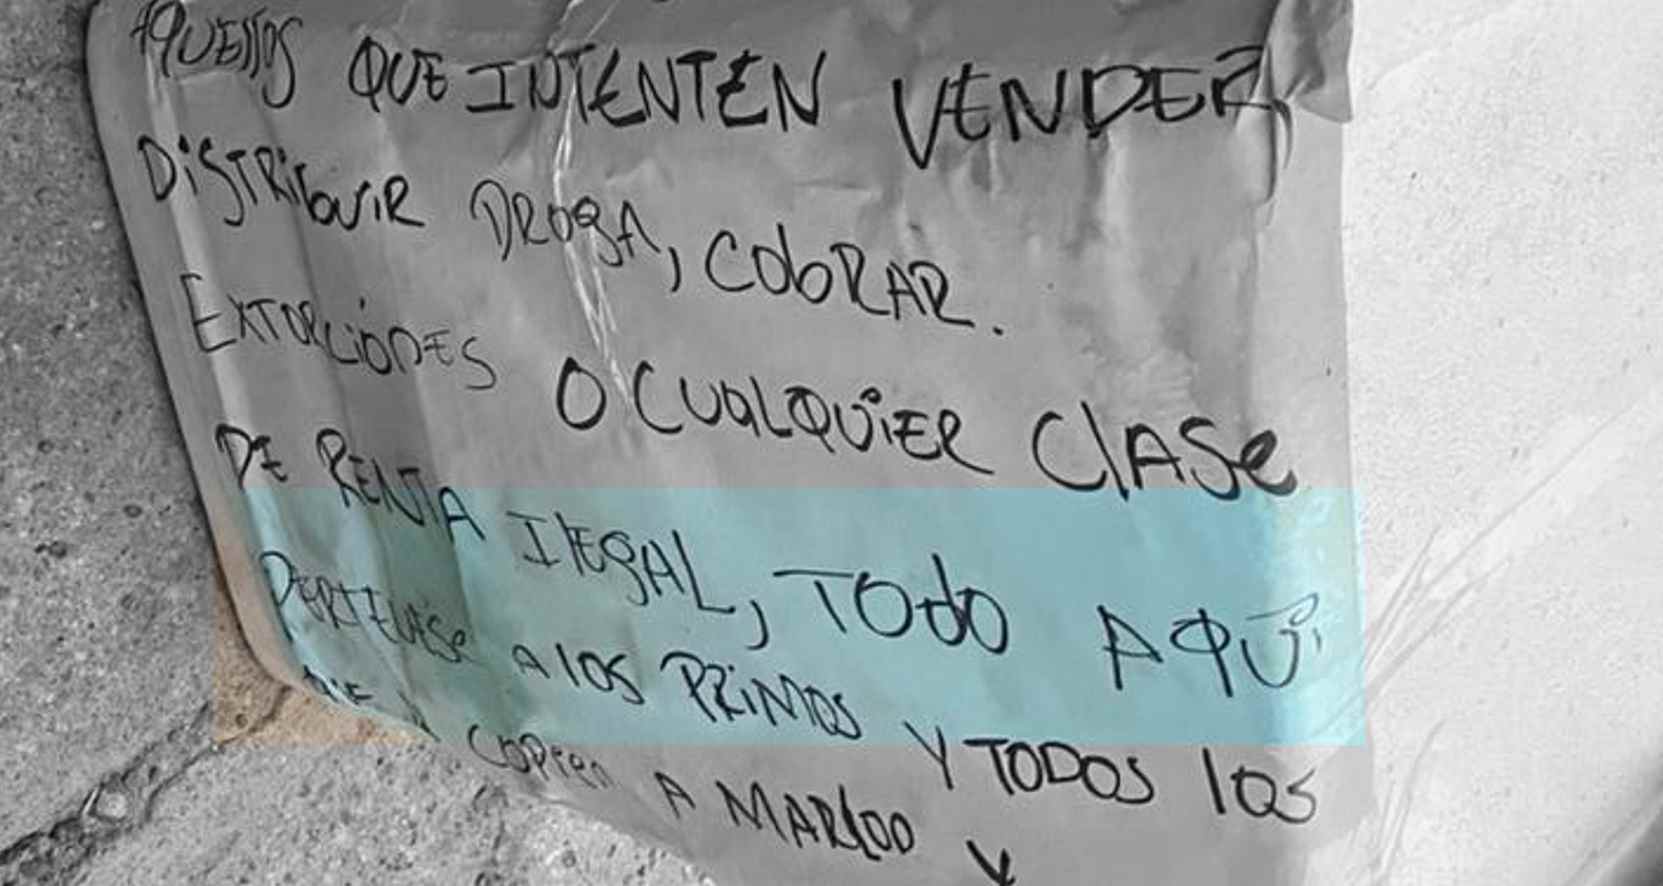 AQUEllOS QUE INTENTEN VENDER,
DiSTRibuiR DROGA, CObRAR.
EXTORCiONES O CUALQUiER ClASe
DE RENTA IlEGAL, TOdO AQUi
PERTENESe A lOS PRiMOS Y TODOS lOS
QUE COPIEN A MARLOO Y